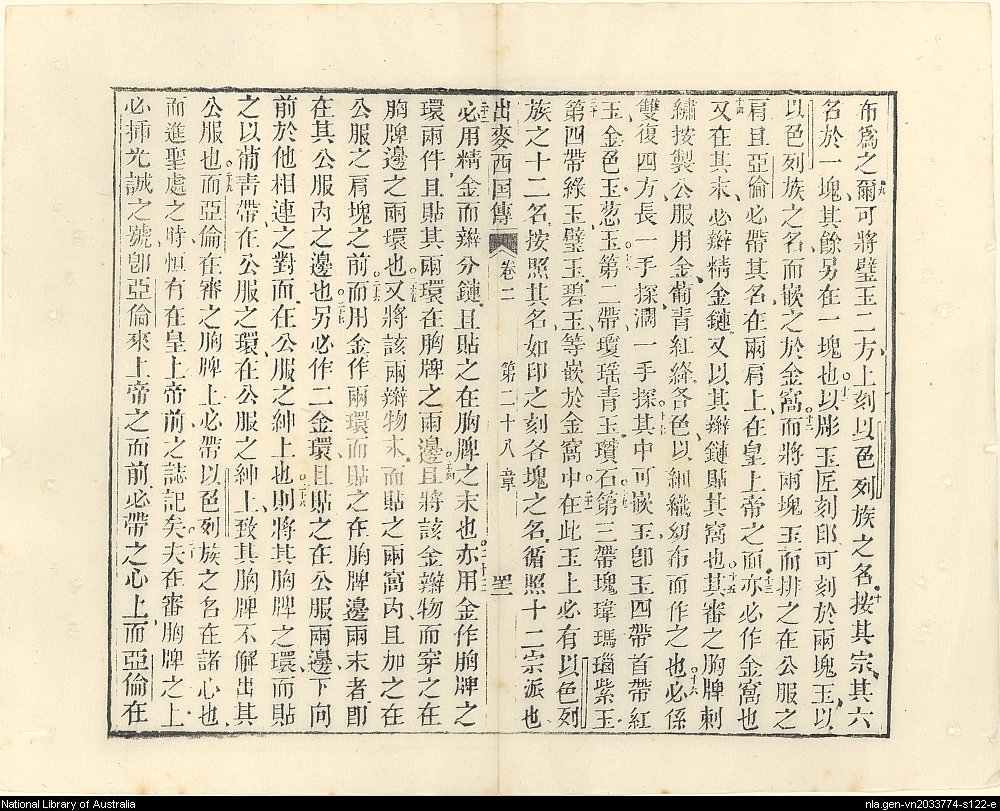 布爲之爾可將璧玉二方上刻以色列族之名按其宗其六
名於一塊其餘另在一塊也以彫玉匠刻印可刻於兩塊玉以
以色列族之名而嵌之於金窩而將兩塊玉而排之在公服之
肩且亞倫必帶其名在兩肩上在皇上帝之面亦必作金窩也
又在其末必辮精金鏈又以其辮鏈貼其窩也其審之胸牌刺
繡按製公服用金葡青紅絳各色以細織幼布而作之也必係
雙復四方長一手探濶一手探其中可嵌玉卽玉四帶首帶紅
玉金色玉葱玉第二帶瓊瑤青玉瓚石第三帶瑰瑋瑪瑙紫玉
第四帶綠玉璧玉碧玉等嵌於金窩中在此玉上必有以色列
族之十二名按照其名如印之刻各塊之名循照十二宗派也
出麥西国傳 卷二 第二十八章
必用精金而辮分鏈且貼之在胸牌之末也亦用金作胸牌之
環兩件且貼其兩環在胸牌之兩邊且將該金辮物而穿之在
胸牌邊之兩環也又將該兩辮物末而貼之兩窩內且加之在
公服之肩塊之前而用金作兩環而貼之在胸牌邊兩末者卽
在其公服內之邊也另必作二金環且貼之在公服兩邊下向
前於他相連之對面在公服之紳上也則將其胸牌之環而貼
之以葡青帶在公服之環在公服之紳上致其胸牌不解出其
公服也而亞倫在審之胸牌上必帶以色列族之名在諸心也
而進聖處之時恒有在皇上帝前之誌記矣夫在審胸牌之上
必揷光誠之號卽亞倫來上帝之面前必帶之心上而亞倫在
National Library of Australia
nla.gen-vn2033774-s122-e